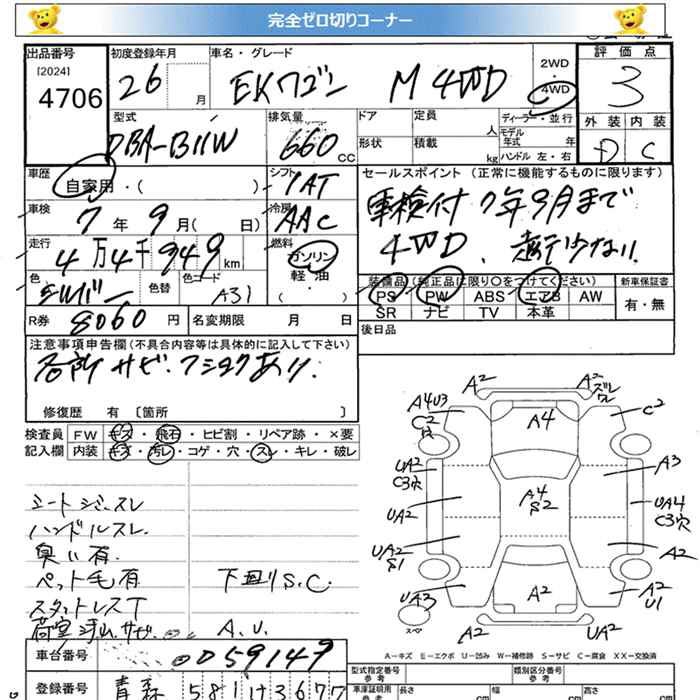 完全ゼロ切りコーナー
出品番号
[2024]
4706
初度登録年月
26
月
車名・グレード
EKワゴン M 4WD
2WD
・
4WD
評価点
3
外装 内装
D C
型式
DBA-B11W
排気量
660
CC
ドア
定員
人
形状
積載
kg
ディーラー・並行
モデル
年式 年
ハンドル 左・右
車歴
自家用・( )
シフト
IAT
セールスポイント (正常に機能するものに限ります)
車検付 7年9月まで
4WD、走行少ない
車検
7年9月( 日)
冷房
AAC
走行
4万4千949km
燃料
ガソリン
軽・油
( ・ )
色
シルバー
色替
色コード
A31
装備品 (純正品に限り○をつけてください)
PS PW ABS エアB AW
SR ナビ TV 本革
新車保証書
有・無
R券 8060円
名変期限 月 日
後日品
注意事項申告欄(不具合内容等は具体的に記入して下さい)
各所サビ.フショクあり.
修復歴 有 〔箇所 〕
検査員 FW キズ・飛石・ヒビ割・リペア跡・×要
記入欄 内装 キズ・汚レ・コゲ・穴・スレ・キレ・破レ
シートシミ.スレ
ハンドルスレ.
臭い有.
ペット毛有
下回りS.C.
スタットレスT
A.U.
A2
A2
ズレ
ワレ
A4U3
C2
A4
C2
UA2
C3穴
A3
A4
S2
UA2
UA4
C3穴
UA2
S1
A2
UA3
A2
A2
U1
スペア
A2
UA2
A-キズ E-エクボ U-凹み W-補修跡 S-サビ C-腐食 XX-交換済
車台番号
0059149
登録番号
青森 581 1 3677
型式指定番号
参考
類別区分番号
参考
車庫証明用
参考
長さ
cm
幅
cm
高さ
cm